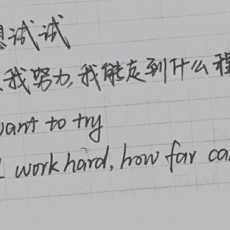 想试试
我努力,我能走到什么程
want to try
I work hard, how far ca